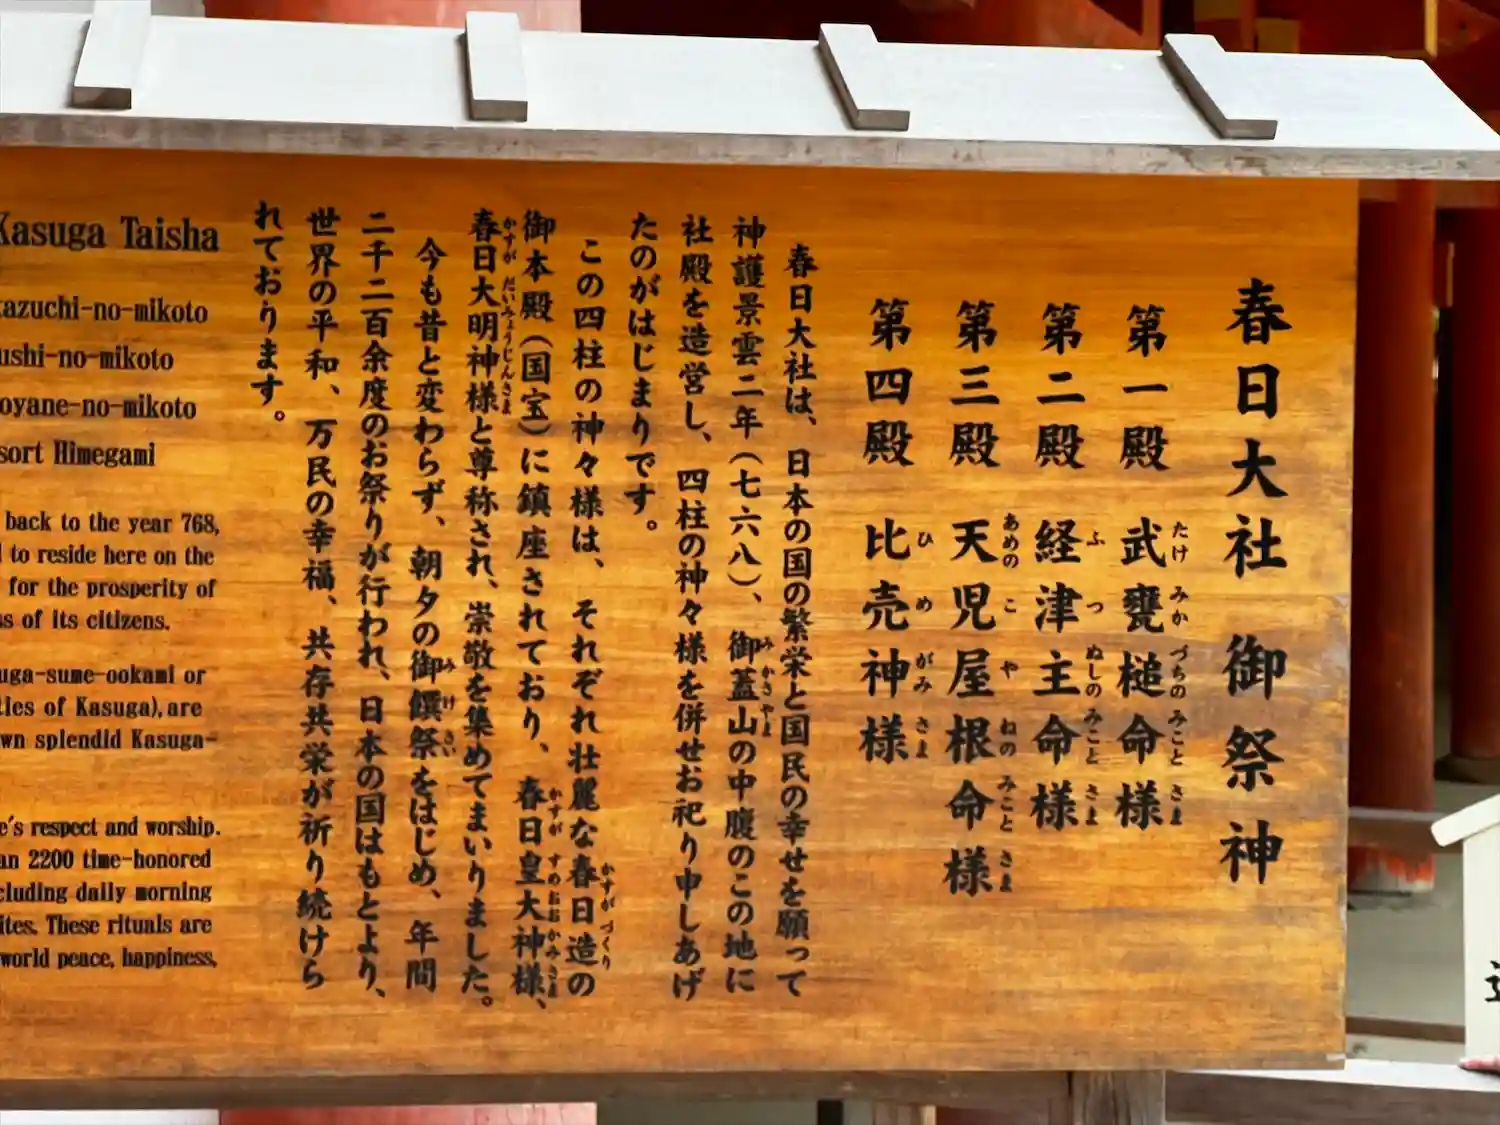 春日大社 御祭神
第一殿 武甕槌命様
たけ みか づちの みこと さま
第二殿 経津主命様
ふ つ ぬしの みこと さま
第三殿 天児屋根命様
あめの こ や ねの みこと さま
第四殿 比売神様
ひ め がみ さま
春日大社は、日本の国の繁栄と国民の幸せを願って
神護景雲二年(七六八)、御蓋山の中腹のこの地に
み かさ やま
社殿を造営し、四柱の神々様を併せお祀り申しあげ
たのがはじまりです。
この四柱の神々様は、それぞれ壮麗な春日造の
かすが づくり
御本殿(国宝)に鎮座されており、春日皇大神様、
かすが すめ おお かみ さま
春日大明神様と尊称され、崇敬を集めてまいりました。
かすが だいみょうじんさま
今も昔と変わらず、朝夕の御饌祭をはじめ、年間
み け さい
二千二百余度のお祭りが行われ、日本の国はもとより、
世界の平和、万民の幸福、共存共栄が祈り続けら
れております。
Kasuga Taisha
azuchi-no-mikoto
ushi-no-mikoto
oyane-no-mikoto
sort Himegami
back to the year 768,
to reside here on the
for the prosperity of
ss of its citizens.
uga-sume-ookami or
ties of Kasuga), are
wn splendid Kasuga-
e's respect and worship.
an 2200 time-honored
cluding daily morning
ites. These rituals are
world peace, happiness,